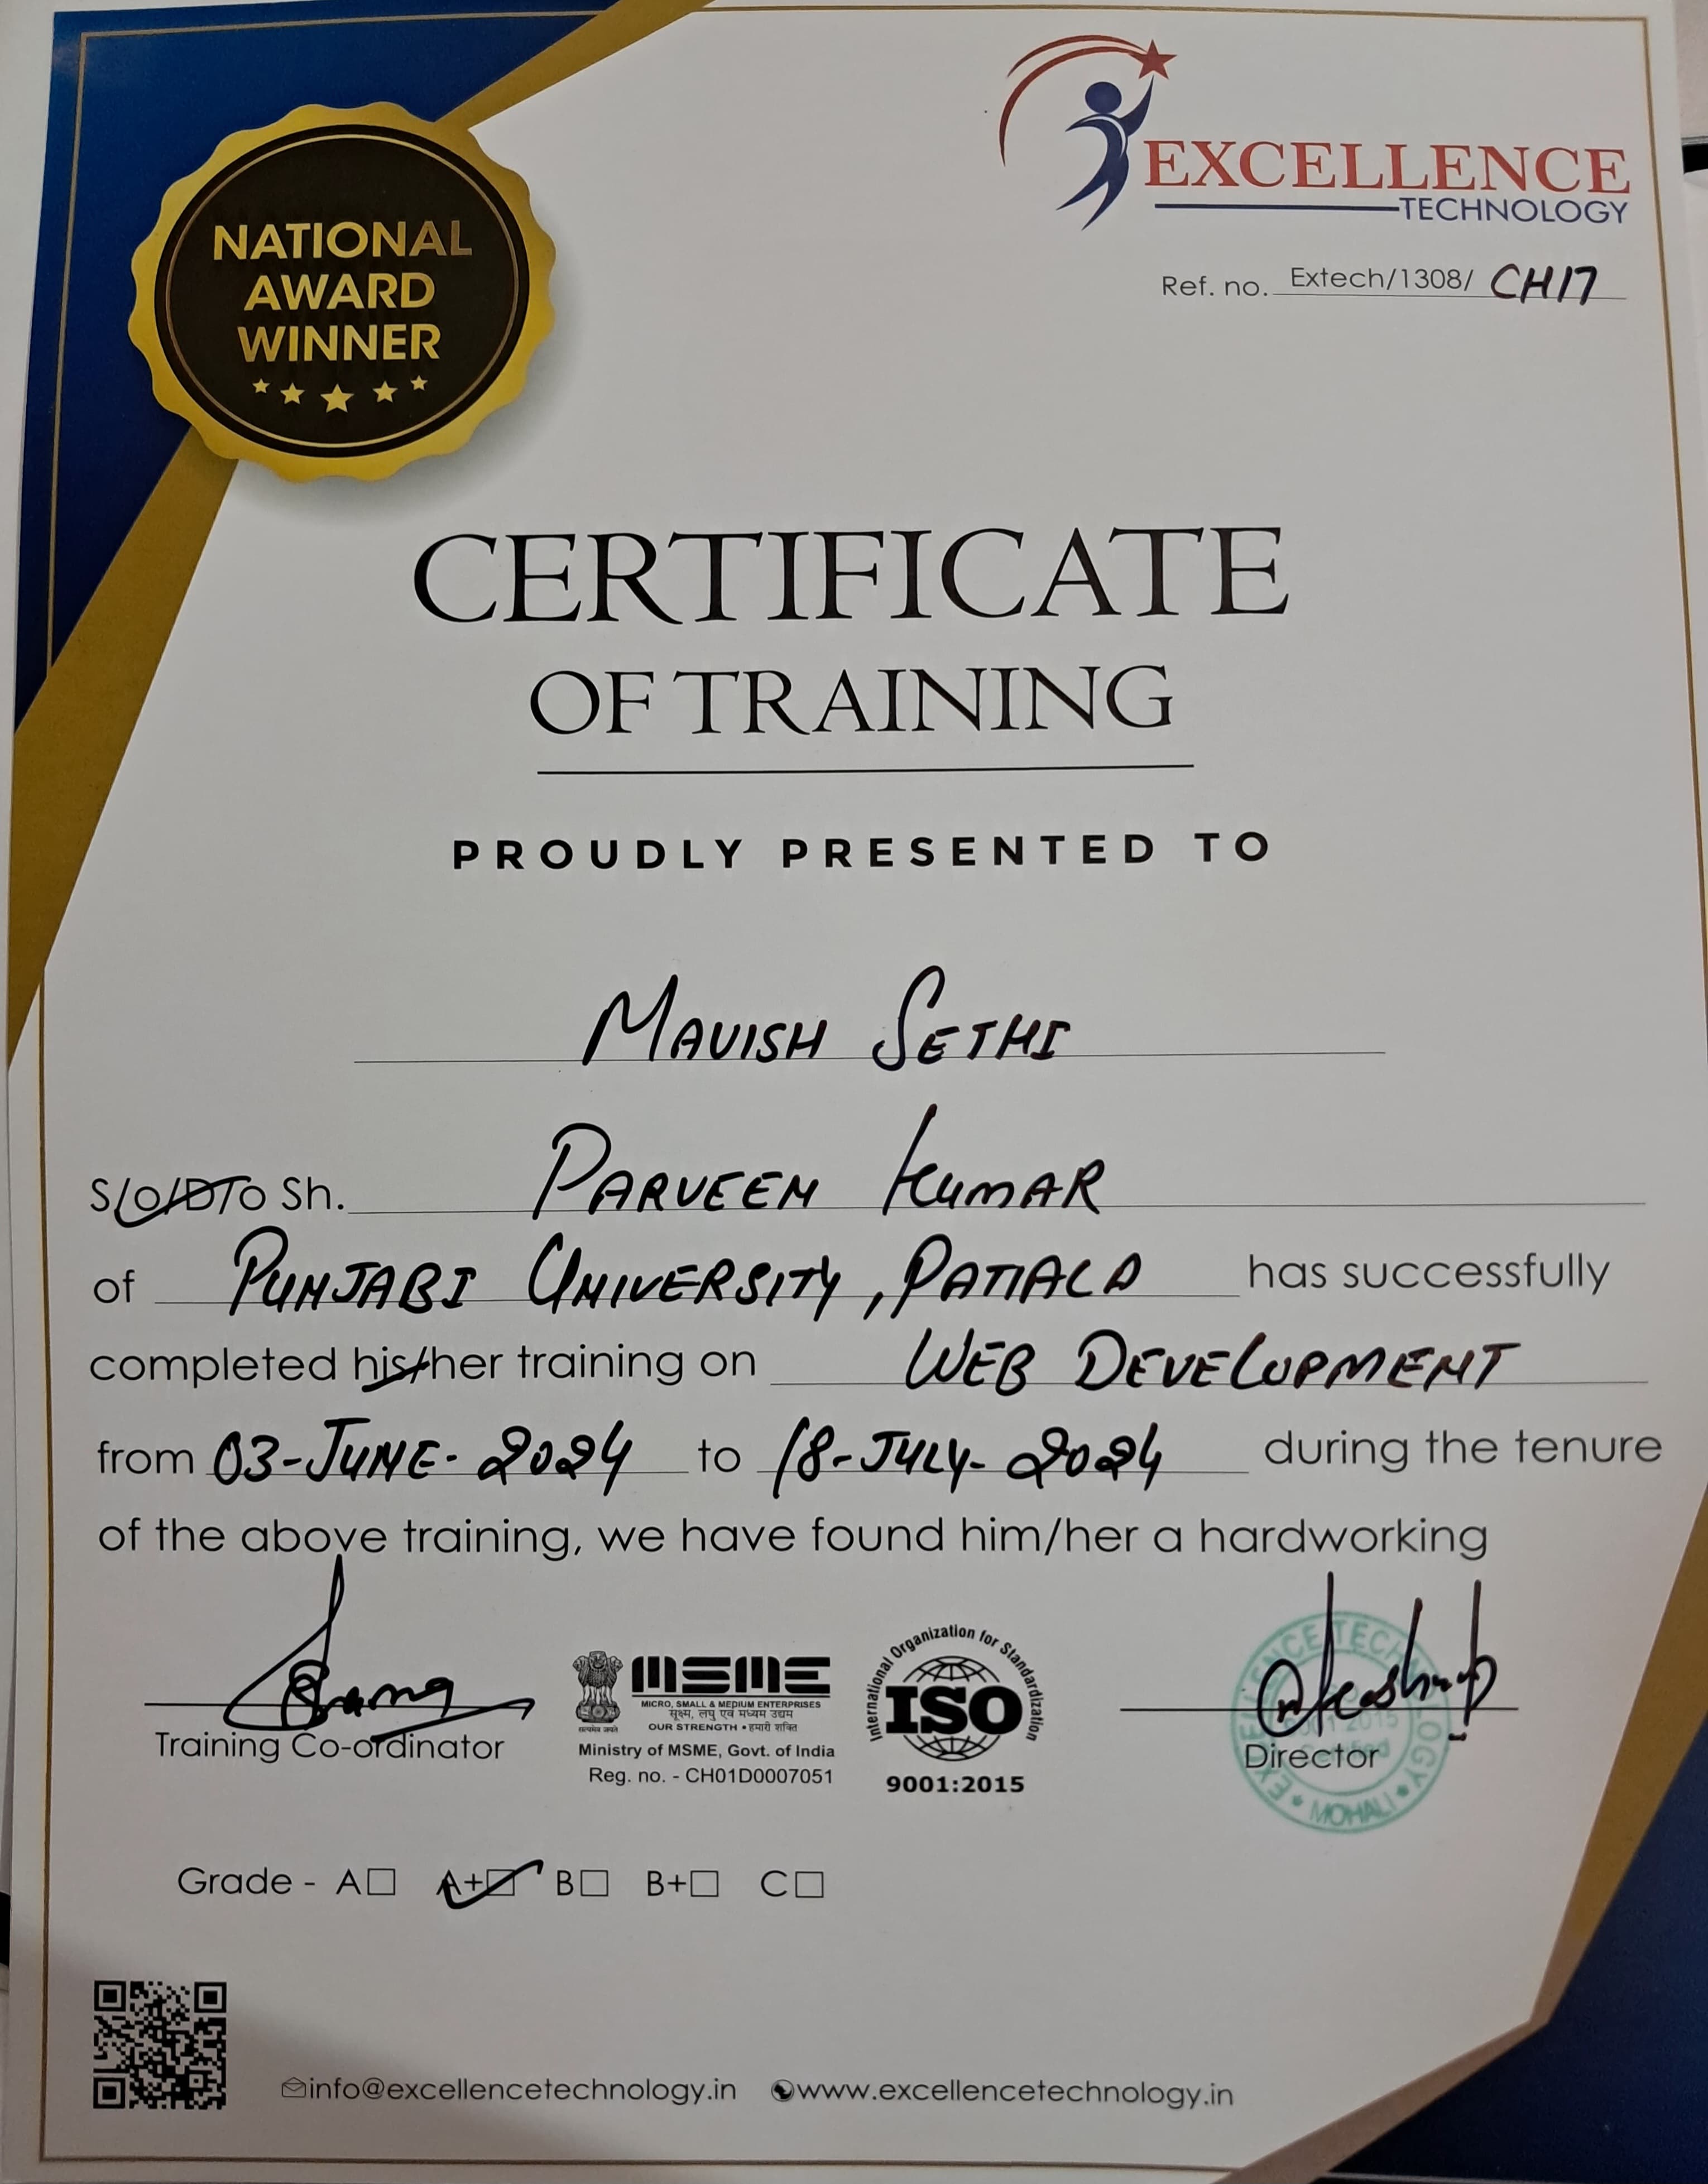 NATIONAL
AWARD
WINNER
EXCELLENCE
TECHNOLOGY
Ref. no. Extech/1308/ CH17
CERTIFICATE
OF TRAINING
PROUDLY PRESENTED TO
MAVISH SETHI
S/O/D/O Sh. PARVEEN KUMAR
of PUNJABI UNIVERSITY, PATIALA has successfully
completed his/her training on WEB DEVELOPMENT
from 03-JUNE-2024 to 18-JULY-2024 during the tenure
of the above training, we have found him/her a hardworking
Training Co-ordinator
सत्यमेव जयते
MSME
MICRO, SMALL & MEDIUM ENTERPRISES
सूक्ष्म, लघु एवं मध्यम उद्यम
OUR STRENGTH • हमारी शक्ति
Ministry of MSME, Govt. of India
Reg. no. - CH01D0007051
International Organization for Standardization
ISO
9001:2015
EXCELLENCE TECHNOLOGY
MOHALI
Director
Grade - A A+ B B+ C
info@excellencetechnology.in www.excellencetechnology.in